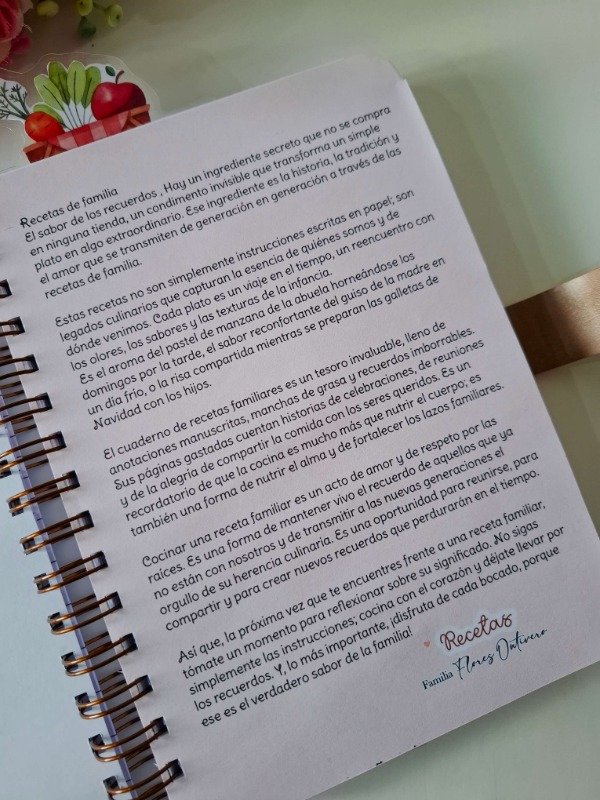 Recetas de familia
El sabor de los recuerdos . Hay un ingrediente secreto que no se compra
en ninguna tienda, un condimento invisible que transforma un simple
plato en algo extraordinario. Ese ingrediente es la historia, la tradición y
el amor que se transmiten de generación en generación a través de las
recetas de familia.
Estas recetas no son simplemente instrucciones escritas en papel; son
legados culinarios que capturan la esencia de quiénes somos y de
dónde venimos. Cada plato es un viaje en el tiempo, un reencuentro con
los olores, los sabores y las texturas de la infancia.
Es el aroma del pastel de manzana de la abuela horneándose los
domingos por la tarde, el sabor reconfortante del guiso de la madre en
un día frío, o la risa compartida mientras se preparan las galletas de
Navidad con los hijos.
El cuaderno de recetas familiares es un tesoro invaluable, lleno de
anotaciones manuscritas, manchas de grasa y recuerdos imborrables.
Sus páginas gastadas cuentan historias de celebraciones, de reuniones
y de la alegría de compartir la comida con los seres queridos. Es un
recordatorio de que la cocina es mucho más que nutrir el cuerpo; es
también una forma de nutrir el alma y de fortalecer los lazos familiares.
Cocinar una receta familiar es un acto de amor y de respeto por las
raíces. Es una forma de mantener vivo el recuerdo de aquellos que ya
no están con nosotros y de transmitir a las nuevas generaciones el
orgullo de su herencia culinaria. Es una oportunidad para reunirse, para
compartir y para crear nuevos recuerdos que perdurarán en el tiempo.
Así que, la próxima vez que te encuentres frente a una receta familiar,
tómate un momento para reflexionar sobre su significado. No sigas
simplemente las instrucciones; cocina con el corazón y déjate llevar por
los recuerdos. Y, lo más importante, ¡disfruta de cada bocado, porque
ese es el verdadero sabor de la familia!
Recetas
Familia Flores Ontivero